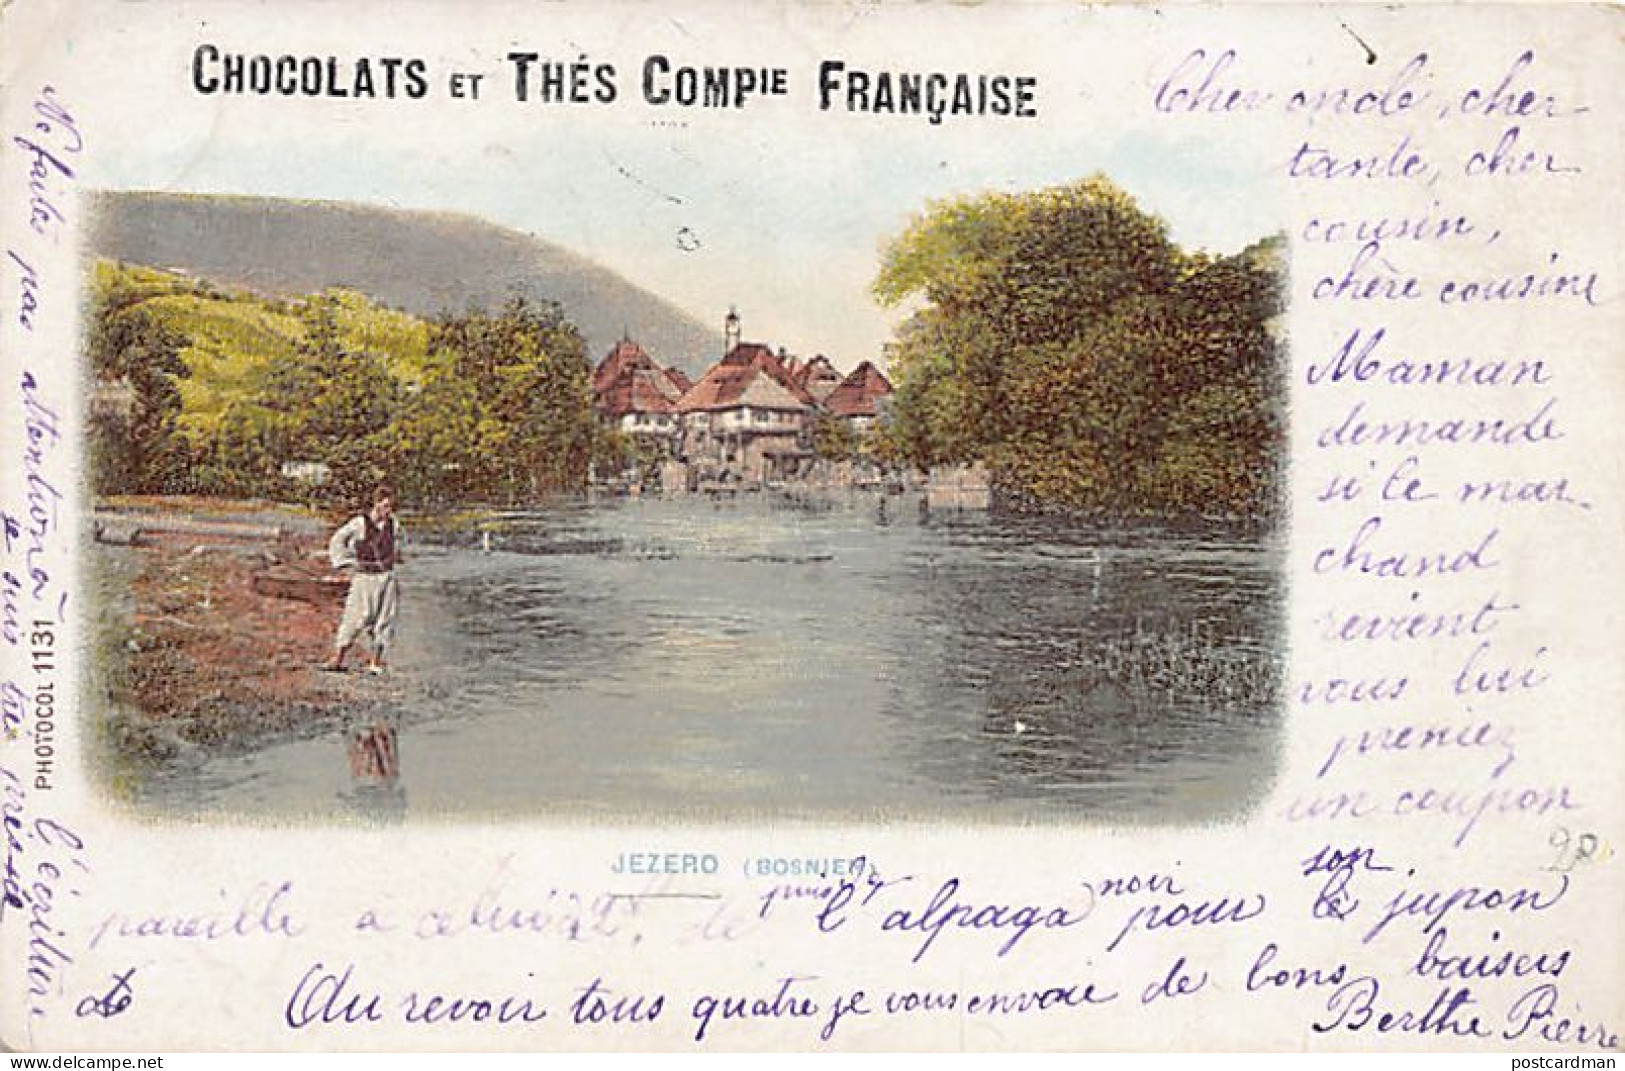 CHOCOLATS ET THÉS COMPIE FRANÇAISE
Cher oncle, cher
tante, cher
cousin,
chère cousine
Maman
demande
si le mar-
chand
revient
vous lui
preniez
un coupon
pareille à celui
de
puis
l'alpaga noir pour son jupon
Au revoir tous quatre je vous envoie de bons baisers
Berthe Pierre
Ne faites pas attention à l'écriture
je suis très pressée
PHOTOCOL 1131
JEZERO (BOSNIEN)
postcardman